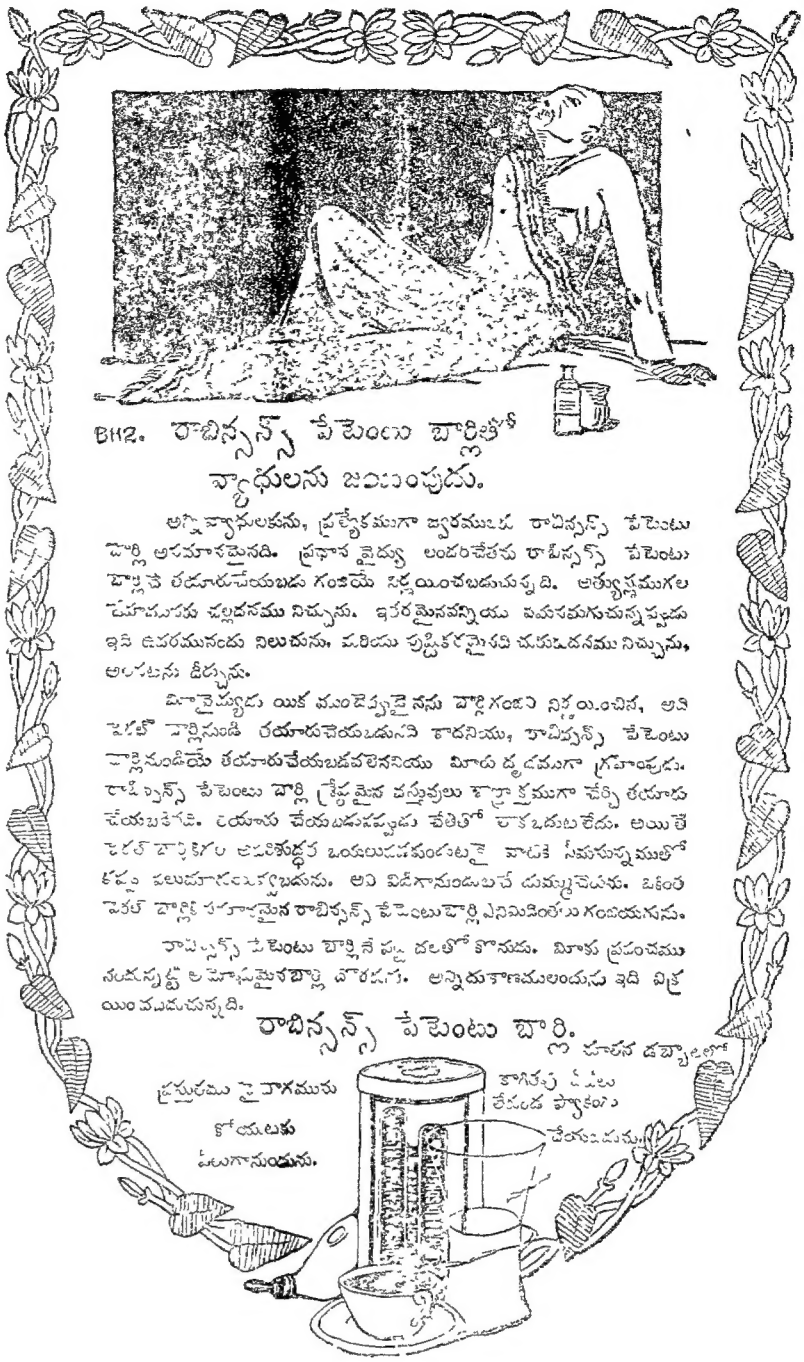 BH2. రాబిన్సన్స్ పేటెంటు బార్లితో
వ్యాధులను జయింపుడు.
అన్నివ్యాధులకును, ప్రత్యేకముగా జ్వరములకు రాబిన్సన్స్ పేటెంటు
బార్లి అసమానమైనది. ప్రధాన వైద్యు లందరిచేతను రాబిన్సన్స్ పేటెంటు
బార్లిచే తయారుచేయబడు గంజియే నిర్ణయించబడుచున్నది. అత్యుష్ణముగల
దేహమునకు చల్లదనము నిచ్చును. ఇతరమైనవన్నియు వమనమగుచున్నప్పుడు
ఇది ఉదరమునందు నిలుచును. మరియు పుష్టికరమైనది చురుకుదనము నిచ్చును,
అలసటను తీర్చును.
మీవైద్యుడు యిక ముందెప్పుడైనను బార్లిగంజిని నిర్ణయించిన, అది
పెరల్ బార్లినుండి తయారుచేయబడునది కాదనియు, రాబిన్సన్స్ పేటెంటు
బార్లినుండియే తయారుచేయబడవలెననియు మీరు దృడముగా గ్రహింపుడు.
రాబిన్సన్స్ పేటెంటు బార్లి శ్రేష్ఠమైన వస్తువులు శాస్త్రోక్తముగా చేర్చి తయారు
చేయబడినది. తయారు చేయబడునప్పుడు చేతితో తాకబడుటలేదు. అయితే
పెరల్ బార్లికిగల అపరిశుద్ధత బయలుపడకుండుటకై వాటికి సీమసున్నముతో
పలుచూ అవి విడిగానుండుటచే దుమ్ముచేరును. ఒకంత
పెరల్ బార్లికి సమానమైన రాబిన్సన్స్ పేటెంటుబార్లి ఎనిమిదింతలు గంజియగును.
రాబిన్సన్స్ పేటెంటు బార్లినే పట్టుదలతో కొనుడు. మీకు ప్రపంచము
నందున్నట్టి అమోఘమైనబార్లి దొరకును. అన్నిదుకాణములందును ఇది విక్ర
యించబడుచున్నది.
రాబిన్సన్స్ పేటెంటు బార్లి.
నూతన డబ్బాలలో
ప్రస్తుతము పై భాగమును
కోయుటకు
వీలుగానుండును.
కాగితపు
లేకుండ ప్యాకింగు
చేయబడును.